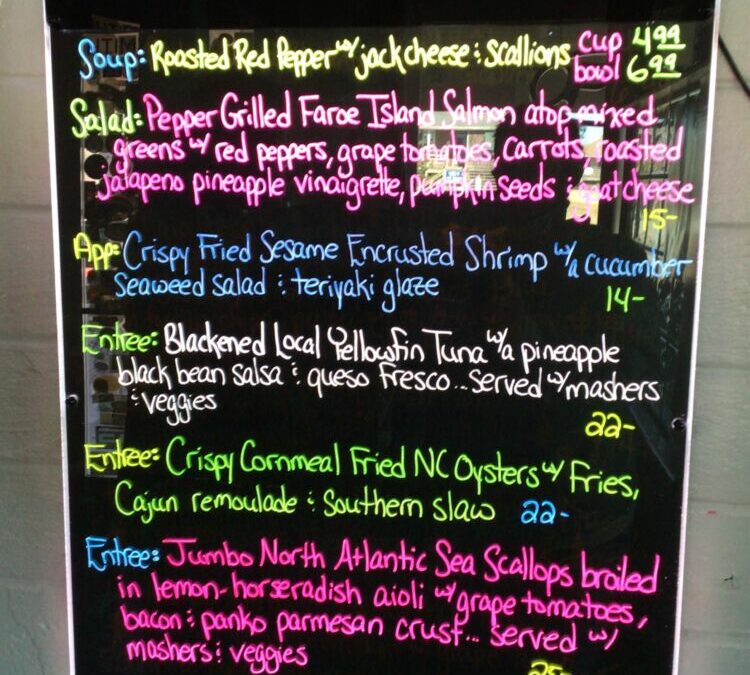 Soup: Roasted Red Pepper w/ jack cheese & scallions cup 4.99
bowl 6.99
Salad: Pepper Grilled Faroe Island Salmon atop mixed
greens w/ red peppers, grape tomatoes, carrots, roasted
jalapeno pineapple vinaigrette, pumpkin seeds & goat cheese
15-
App: Crispy Fried Sesame Encrusted Shrimp w/a cucumber
seaweed salad & teriyaki glaze
14-
Entree: Blackened Local Yellowfin Tuna w/a pineapple
black bean salsa & queso fresco... served w/mashers
& veggies
22-
Entree: Crispy Cornmeal Fried NC Oysters w/ Fries,
Cajun remoulade & Southern slaw 22-
Entree: Jumbo North Atlantic Sea Scallops broiled
in lemon-horseradish aioli w/ grape tomatoes,
bacon & panko parmesan crust... served w/
mashers & veggies
25-